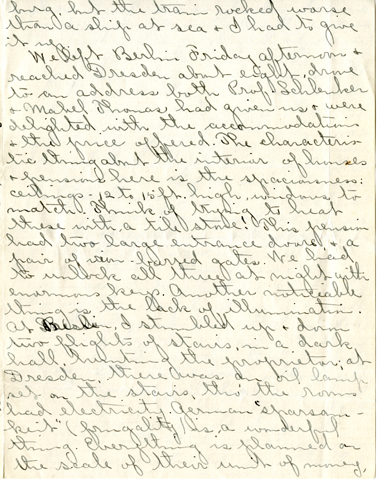 burg, but the train rocked worse
than a ship at sea & I had to give
it up.
We left Berlin Friday afternoon &
reached Dresden about eight, drove
to an address both Prof. Schlenker
& Mabel Thomas had given us & were
delighted with the accommodation
& the price offered. The characteris-
tic thing about the interior of houses
& pensions here is the spaciousness:
ceilings 12 to 15 ft. high, windows to
match. Think of trying to heat
these with a tile stove! This pension
had two large entrance doors, & a
pair of iron barred gates. We had
to unlock all three at night with
enormous keys. Another noticeable
thing is the lack of illumination.
At I stumbled up & down
two flights of stairs, in a dark
hall hunting the proprietor; at
Dresden, there was an oil lamp
set on the stairs, tho' the rooms
had electricity. German "sparsam-
keit" (frugality) is a wonderful
thing. Everything is planned on
the scale of their unit of money,